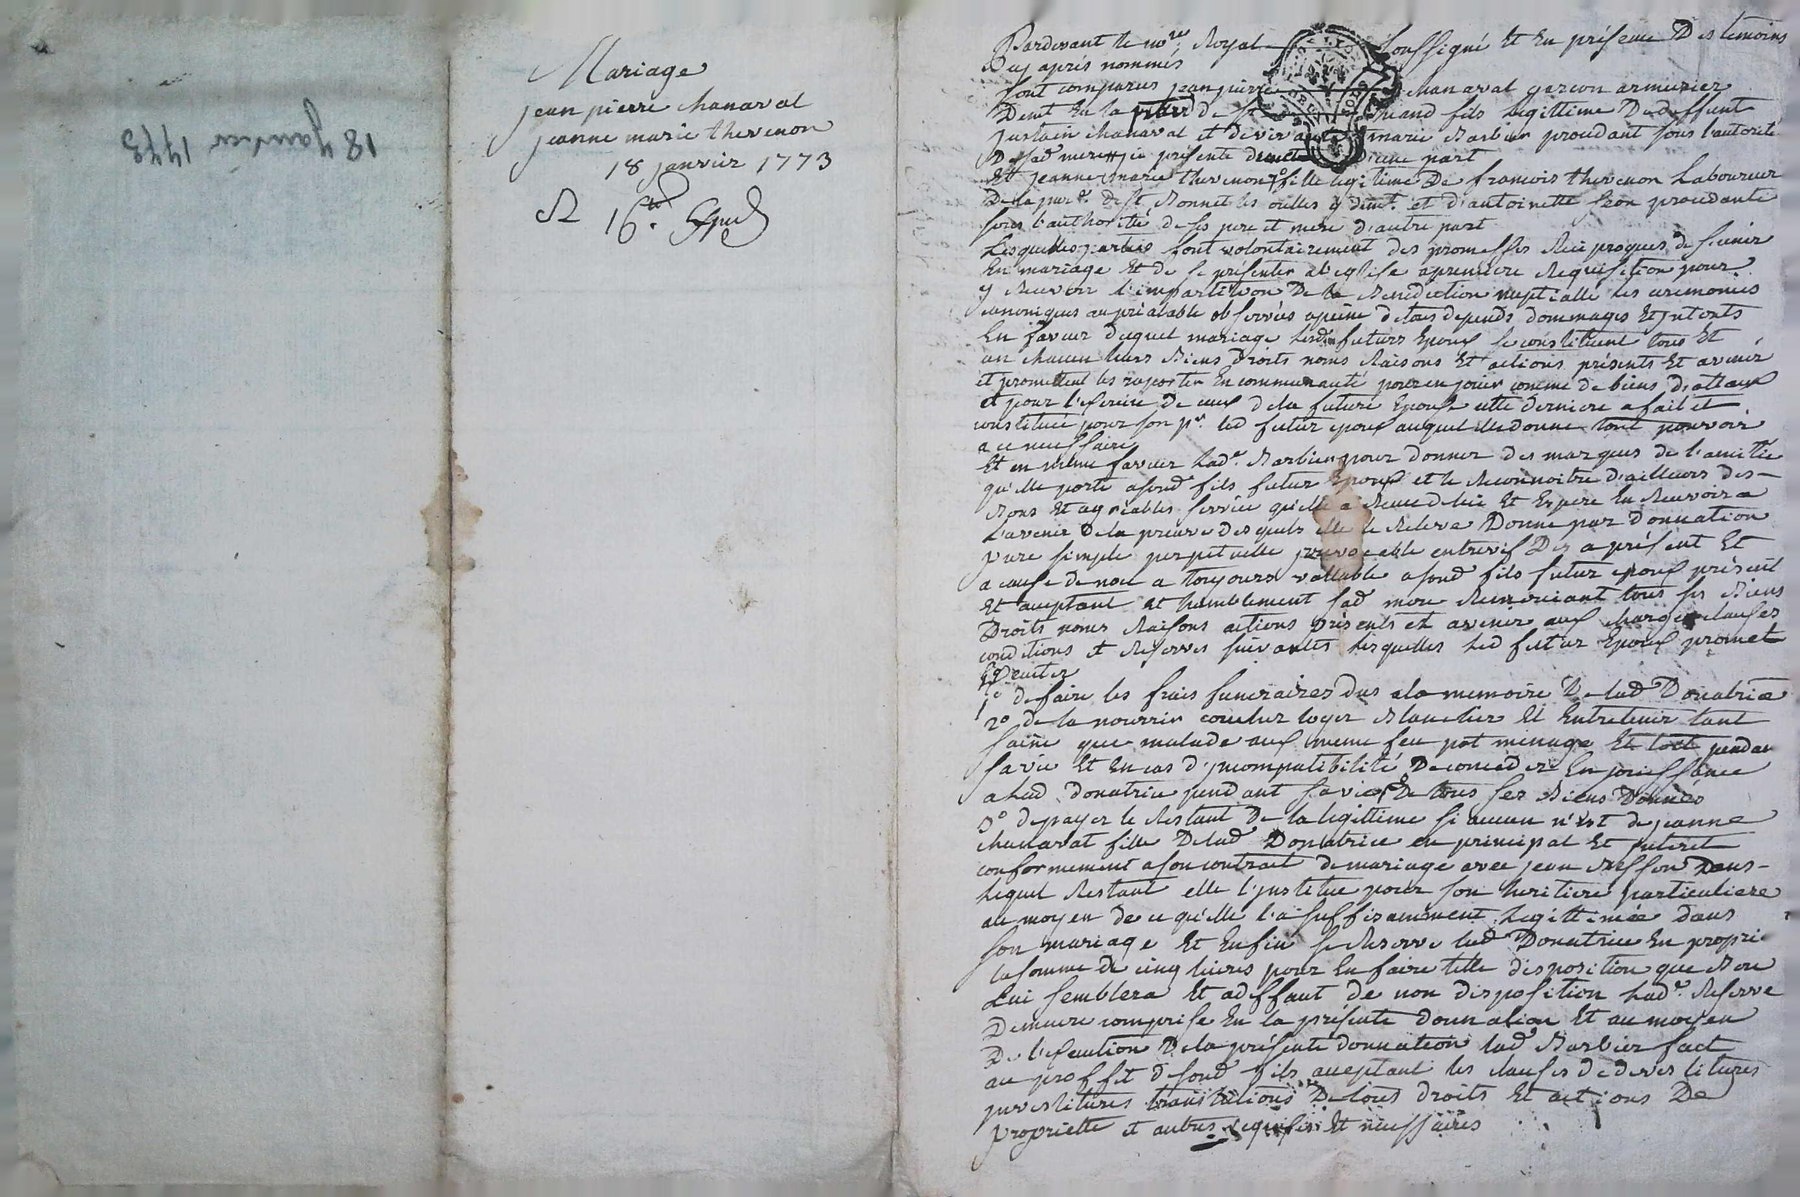 18 Janvier 1773
Mariage
jean pierre chanavat
jeanne marie thevenon
18 janvier 1773
Pardevant le no.re Royal soussigné Et En présence Des temoins
cy apres nommés
sont comparus jean pierre chanavat garcon armurier
Dem.t En la parr. de St. fils legittime De deffunt
justain chanavat et de vivante marie Barbier procedant sous l'autorité
De sad. mere icy présente D'une part
Et jeanne marie thevenon fille legitime De francois thevenon Laboureur
De la par.e de st Bonnet les oulles y dem.t et d'antoinette procedante
sous l'authorité de ses pere et mere d'autre part
Lesquelles parties font volontairement des promesses Reciproques de s'unir
En mariage Et de se présenter a l'eglise a premiere Requisition pour
y Recevoir l'impartition De la Benediction nuptialle les ceremonies
canoniques au préalable observées a peine de tous depends dommages Et jnterets
En faveur duquel mariage lesd. futurs Epoux se constituent tous Et
un chacun leurs Biens Droits noms Raisons Et actions présents Et avenir
et promettent les raporter En communauté pour en jouir comme de biens dottaux
et pour l'exercice De ceux de la future Epouse cette derniere a fait et
constitué pour son p.r led futur epoux auquel elle donne tout pouvoir
a ce necessaire
Et en meme faveur lad.e Barbier pour donner des marques de l'amitié
qu'elle porte a sond fils futur Epoux et le Reconnoitre d'ailleurs des
Bons Et agréables services qu'elle a Receu de lui Et Espere En Recevoir a
L'avenir De la preuve desquels elle le Releve Donne par donnation
pure simple perpetuelle jrrevocable entrevifs Des a présent Et
a cause de noce a toujours vallable a sond fils futur epoux présent
Et acceptant et humblement sad mere Remerciant tous ses Biens
Droits noms Raisons actions présents et avenir aux charges clauses
conditions et Reserves suivantes lesquelles led futur Epoux promet
Executer
1° de faire les frais funeraires dus a la memoire De lad Donatrice
2° de la nourrir coucher loger Blanchir Et Entretenir tant
saine que malade aux meme feu pot menage Et toit pendant
sa vie Et En cas d'jncompatibilité De conceder En jouissance
a lad. donatrice pendant sa vie De tous ses Biens Donnés
3° de payer le Restant De la legittime si aucun n'est de jeanne
chanavat fille De lad Donatrice en principal Et jnteret
conformement a son contrait de mariage avec jean Dans
lequel Restant elle l'jnstitue pour son heritiere particuliere
au moyen de ce qu'elle l'a suffisamment Legittimée dans
son mariage Et Enfin se Reserve lad Donatrice En propre
la somme de cinq livres pour En faire telle disposition que Bon
Lui semblera Et a deffaut de non disposition lad.e Reserve
Demeure comprise En la présente donnation Et au moyen
De l'execution De la présente donnation lad Barbier fait
au proffit de sond fils acceptant les clauses de devestitures
jnvestitures translations De tous droits Et actions De
proprieté et autres requises Et necessaires